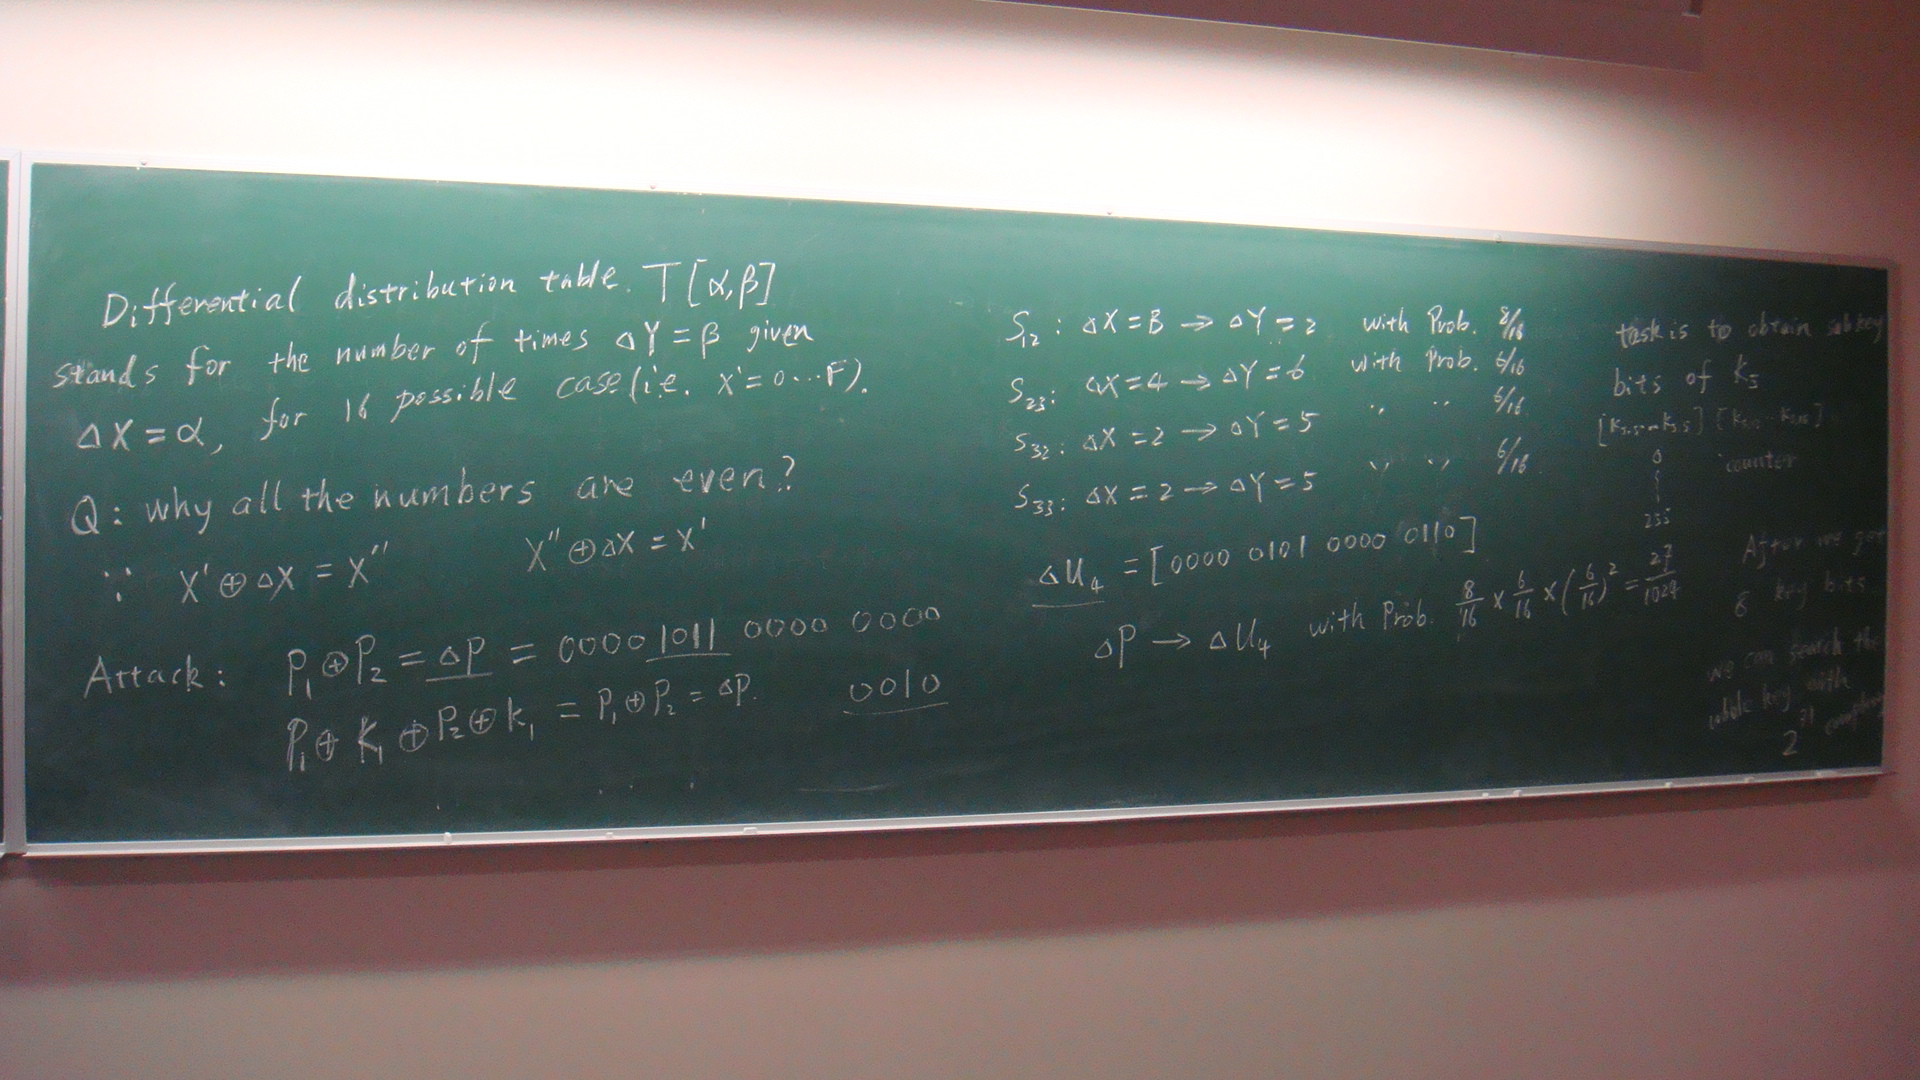 Differential distribution table. T[α,β]
stands for the number of times ΔY=β given
ΔX=α, for 16 possible case(i.e. X'=0...F).
Q: why all the numbers are even?
∵ X'⊕ΔX = X'' X''⊕ΔX = X'
Attack: P₁⊕P₂ = ΔP = 0000 1011 0000 0000
P₁⊕K₁⊕P₂⊕K₁ = P₁⊕P₂ = ΔP. 0010
S₁₂: ΔX=B → ΔY=2 with Prob. 8/16
S₂₃: ΔX=4 → ΔY=6 with Prob. 6/16
S₃₂: ΔX=2 → ΔY=5 〃 〃 6/16
S₃₃: ΔX=2 → ΔY=5 〃 〃 6/16
ΔU₄ = [0000 0101 0000 0110]
ΔP → ΔU₄ with Prob. 8/16 × 6/16 × (6/16)² = 27/1024
task is to obtain subkey
bits of K₅
0 counter
255
After we get
8 key bits
we can search the
whole key with
2